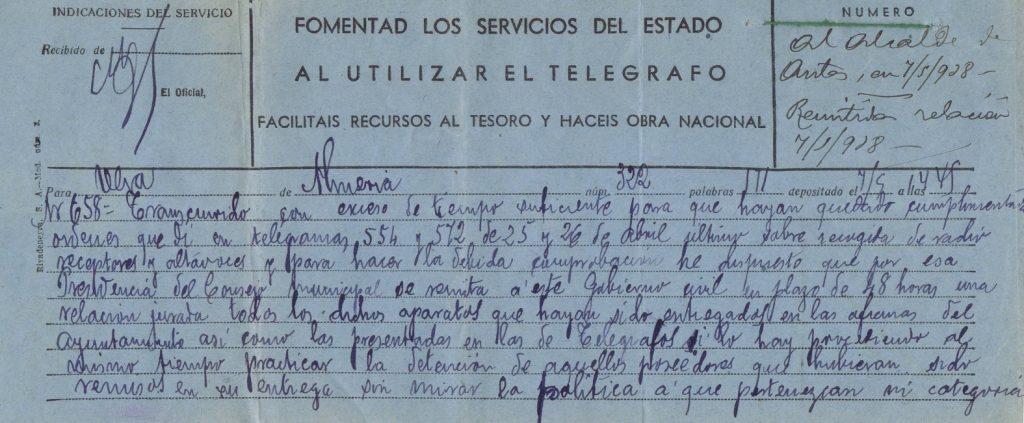 INDICACIONES DEL SERVICIO
Recibido de
El Oficial,
FOMENTAD LOS SERVICIOS DEL ESTADO
AL UTILIZAR EL TELEGRAFO
FACILITAIS RECURSOS AL TESORO Y HACEIS OBRA NACIONAL
NUMERO
Al Alcalde de
Antas, en 7/5/938 -
Remitida relación
7/5/938 -
Rivadeneyra, S. A.—Mod. núm. 2.
Para Vera de Almeria núm. 322 palabras 111 depositado el 7/5 a las 1445
Nº 658 - Transcurrido con exceso de tiempo suficiente para que hayan quedado cumplimentadas
ordenes que di en telegramas 554 y 572 de 25 y 26 de Abril ultimo sobre recogida de radio
receptores y altavoces y para hacer la debida comprobacion he dispuesto que por esa
Presidencia del Consejo municipal se remita a este Gobierno civil en plazo de 48 horas una
relacion jurada todos los dichos aparatos que hayan sido entregados en las oficinas del
ayuntamiento así como las presentadas en las de Telegrafos si lo hay procediendo al
mismo tiempo practicar la detencion de aquellos poseedores que hubieran sido
remisos en su entrega sin mirar la politica a que pertenezcan ni categoria